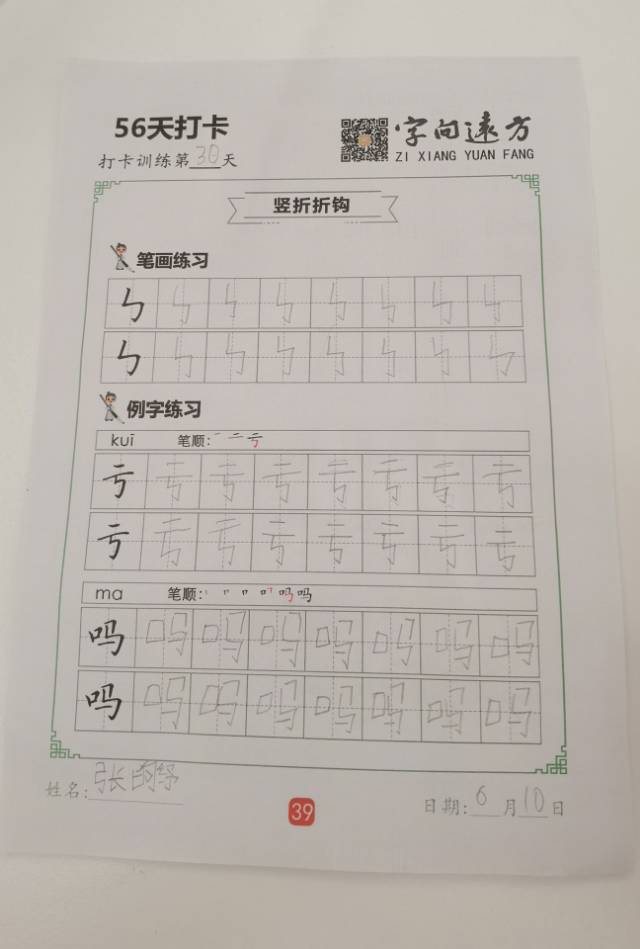 56天打卡
打卡训练第30天
字向远方
ZI XIANG YUAN FANG
竖折折钩
笔画练习
ㄣ ㄣ ㄣ ㄣ ㄣ ㄣ ㄣ ㄣ
ㄣ ㄣ ㄣ ㄣ ㄣ ㄣ ㄣ ㄣ
例字练习
kuī 笔顺: 一 二 亏
亏 亏 亏 亏 亏 亏 亏 亏
亏 亏 亏 亏 亏 亏 亏 亏
ma 笔顺: 吗 吗
吗 吗 吗 吗 吗 吗 吗 吗
吗 吗 吗 吗 吗 吗 吗 吗
姓名: 张
39
日期: 6 月 10 日